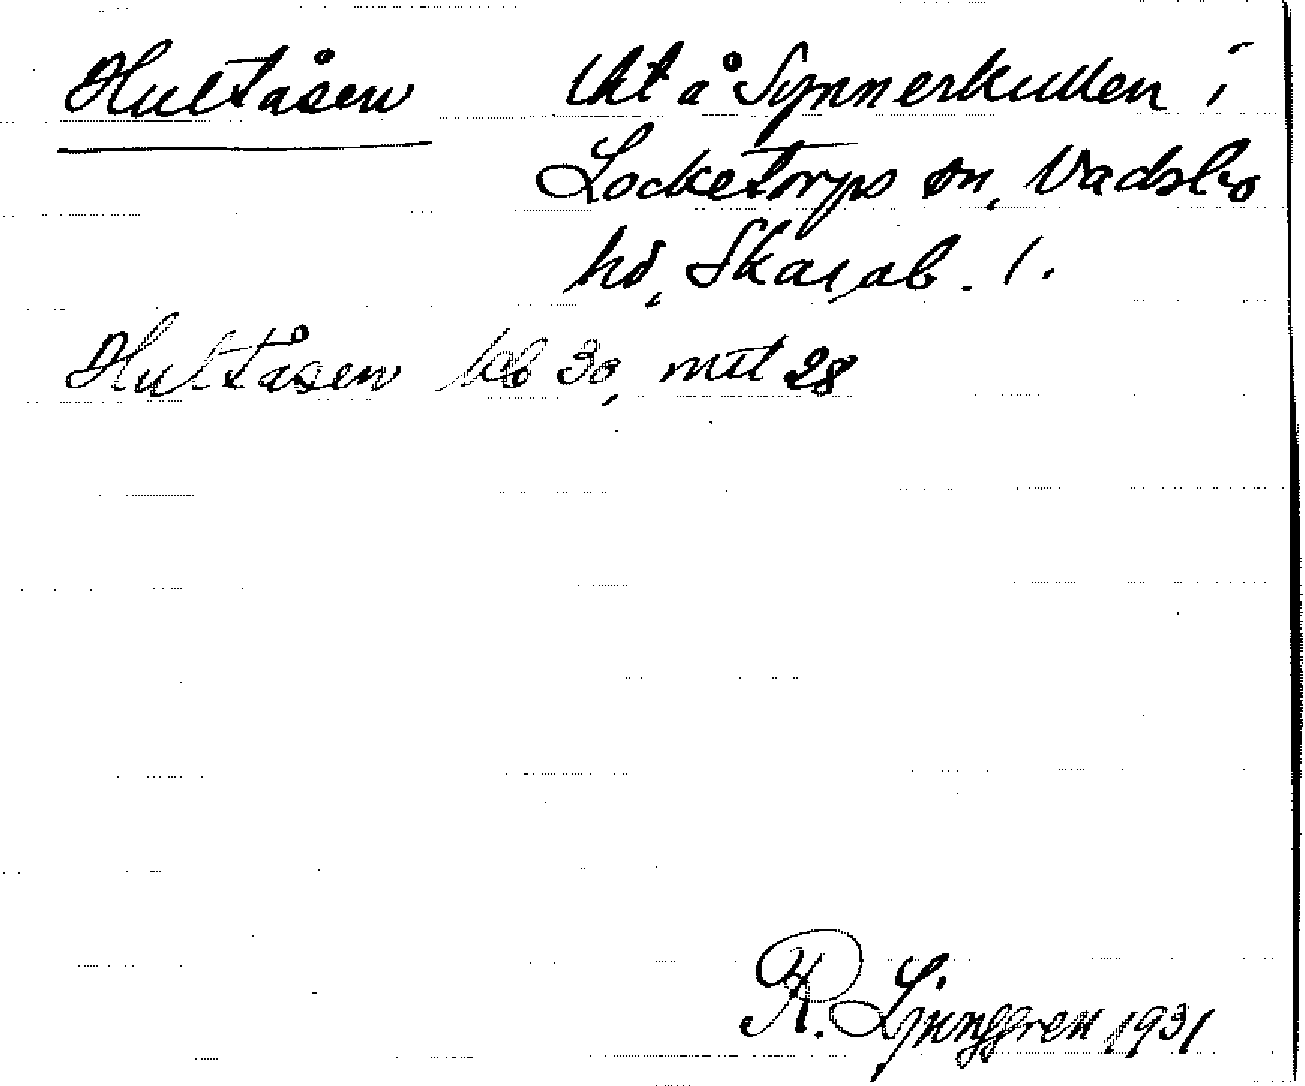 Hultåsen Lht å Symmerkullen i
Locketorps sn, Vadsbo
hd, Skarab. l.
Hultåsen kb 30, mtl 28
R. Ljunggren 1931